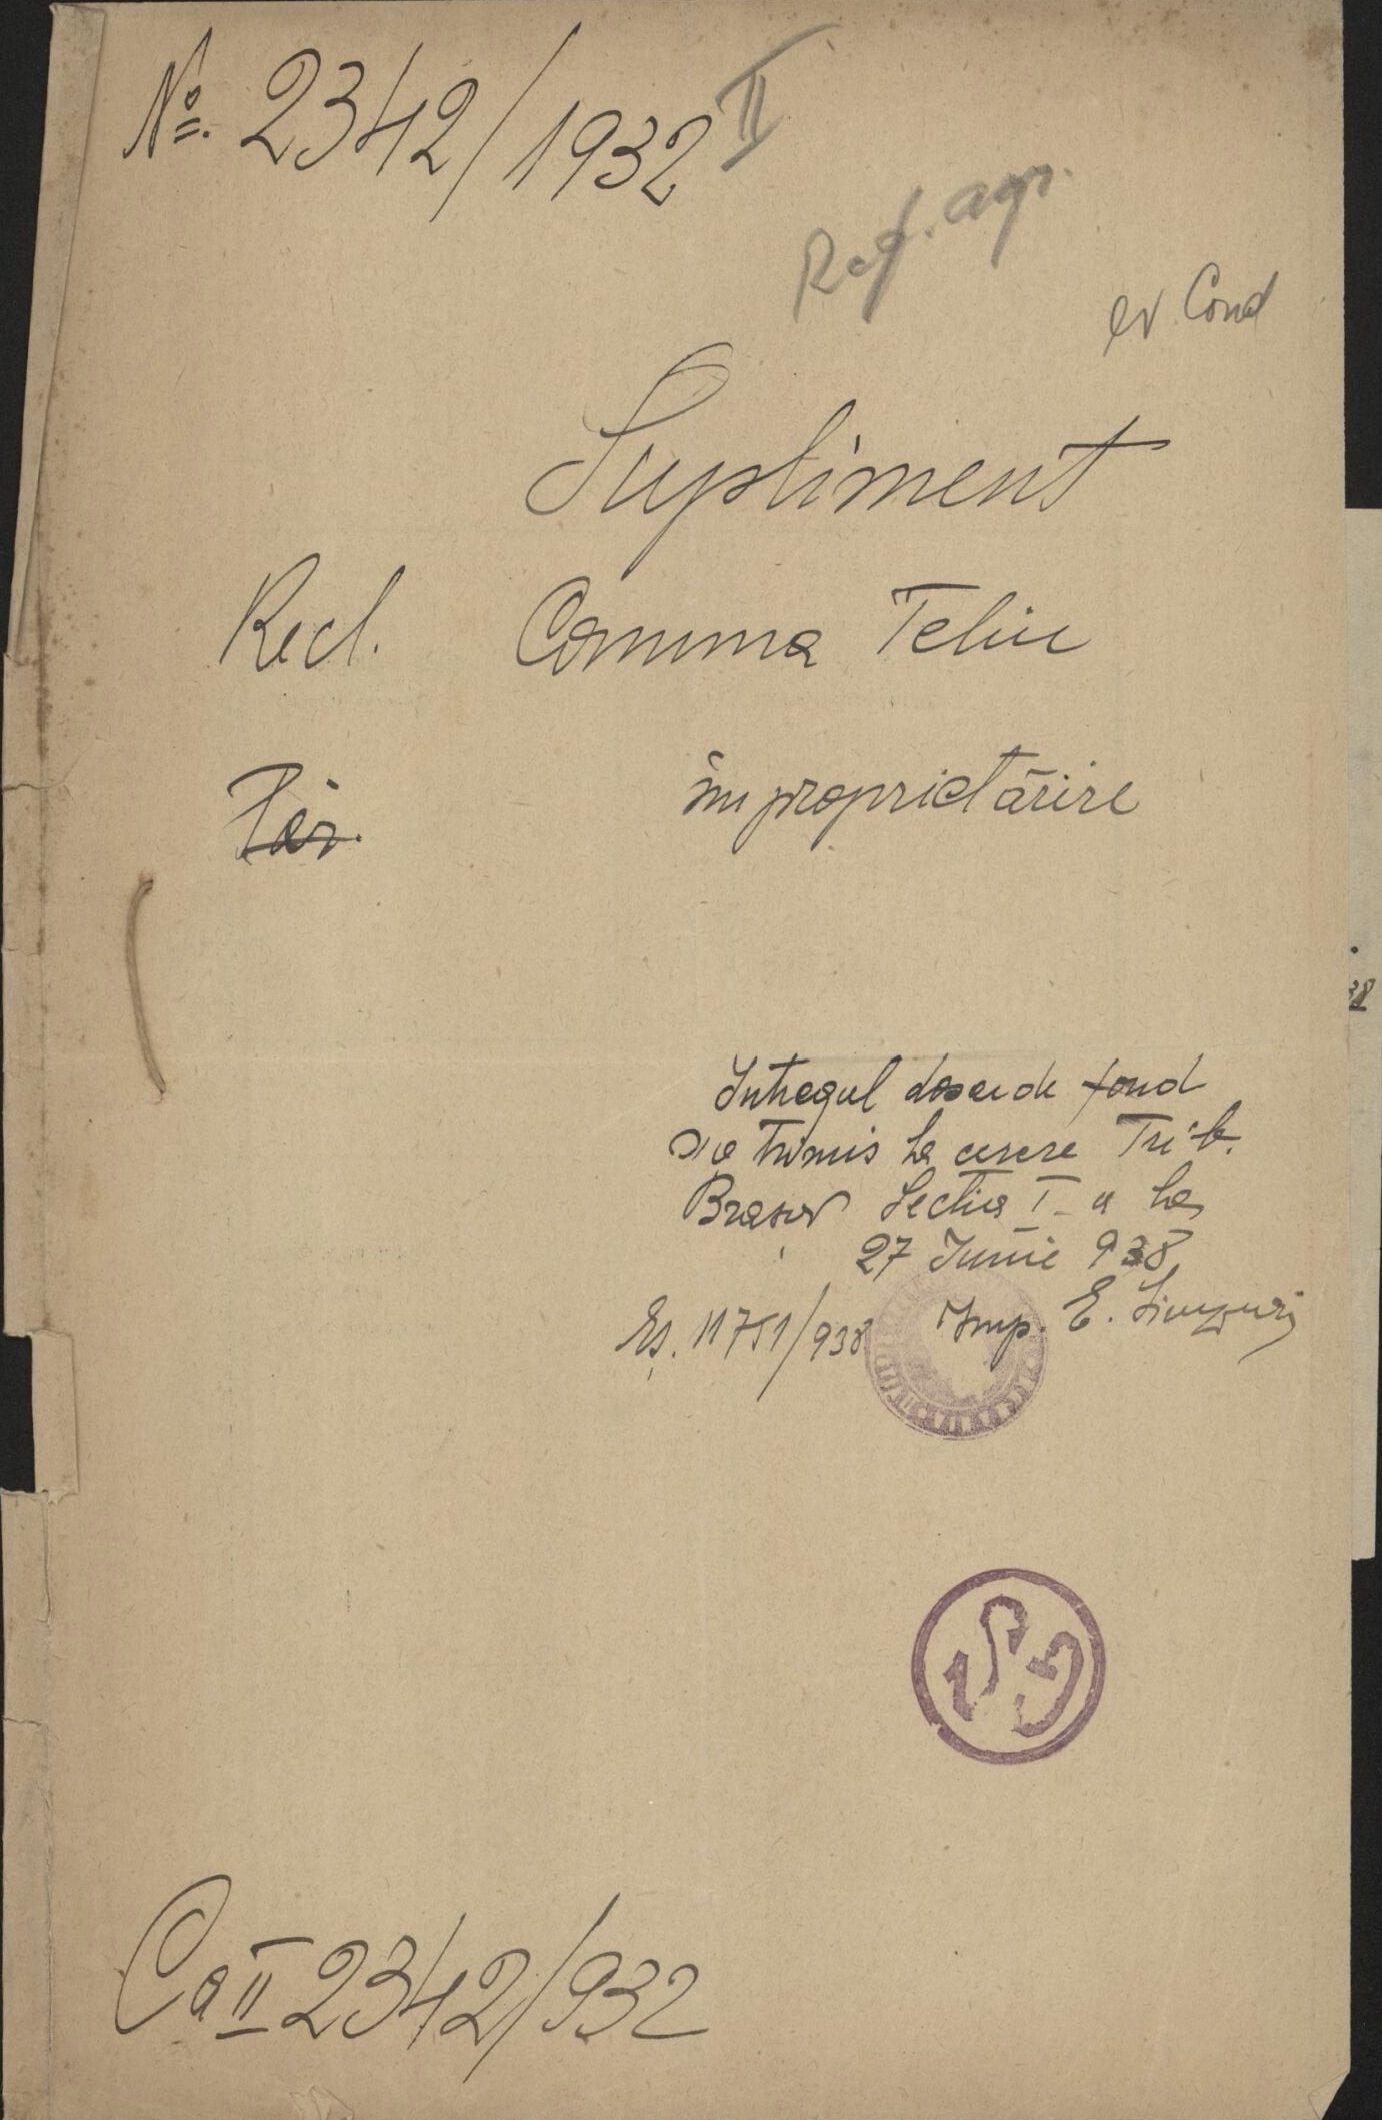 No. 2342/1932 II
Ref. agr.
Supliment
Recl. Comuna Teliu
Pâr.
împroprietărire
Intregul dosar de fond
s'a trimis la cerere Trib.
Brașov Secția I-a la
27 Iunie 938
Eș. 11751/938 Imp. E.
Ca II 2342/932